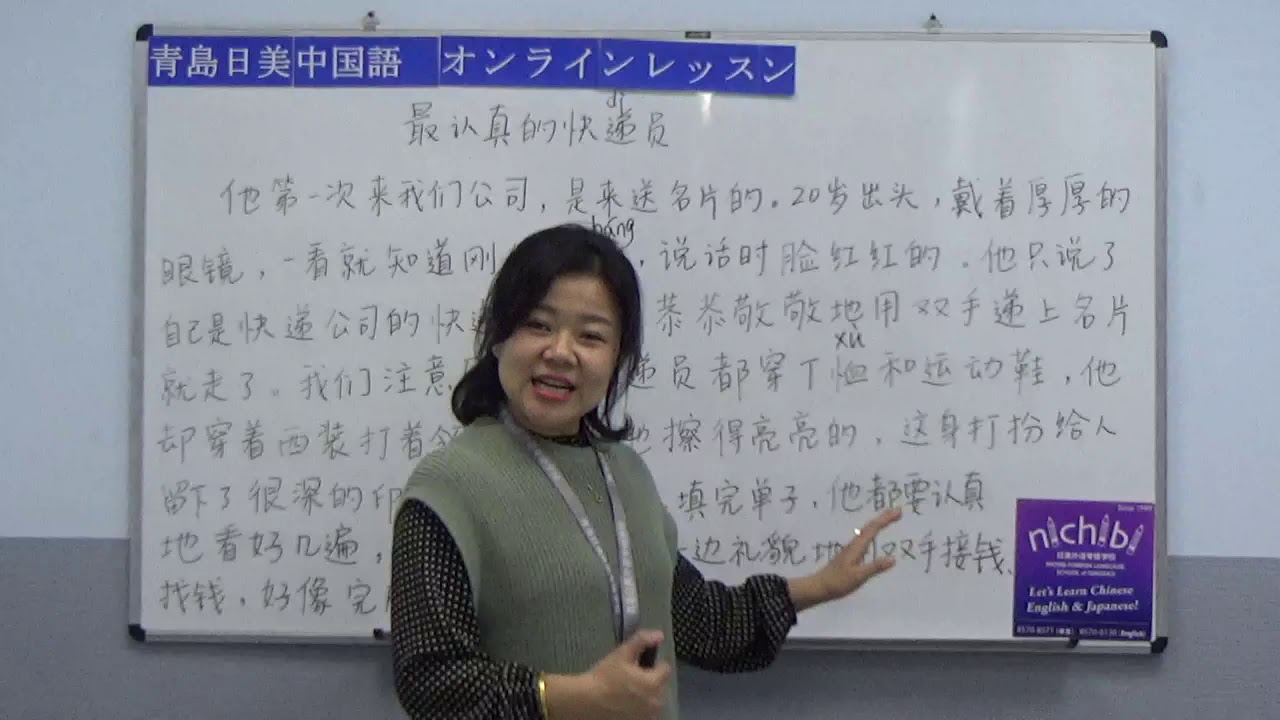 青島日美中国語 オンラインレッスン
dì
最认真的快递员
他第一次来我们公司，是来送名片的。20岁出头，戴着厚厚的
háng
眼镜，一看就知道刚，说话时脸红红的。他只说了
自己是快递公司的快递恭恭敬敬地用双手递上名片
xù
就走了。我们注意递员都穿T恤和运动鞋，他
却穿着西装打着也擦得亮亮的，这身打扮给人
留下了很深的印填完单子，他都要认真
地看好几遍，边礼貌地用双手接钱、
找钱，好像完
Since 1989
nichibi
NICHIBI FOREIGN LANGUAGE
SCHOOL of QINGDAO
Let's Learn Chinese
English & Japanese!